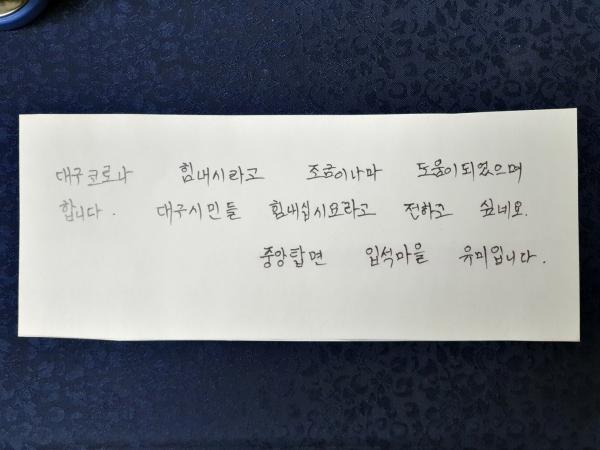 대구코로나 힘내시라고 조금이나마 도움이되었으며
합니다. 대구시민들 힘내십시요라고 전하고 싶네요.
중앙탑면 입석마을 유미입니다.